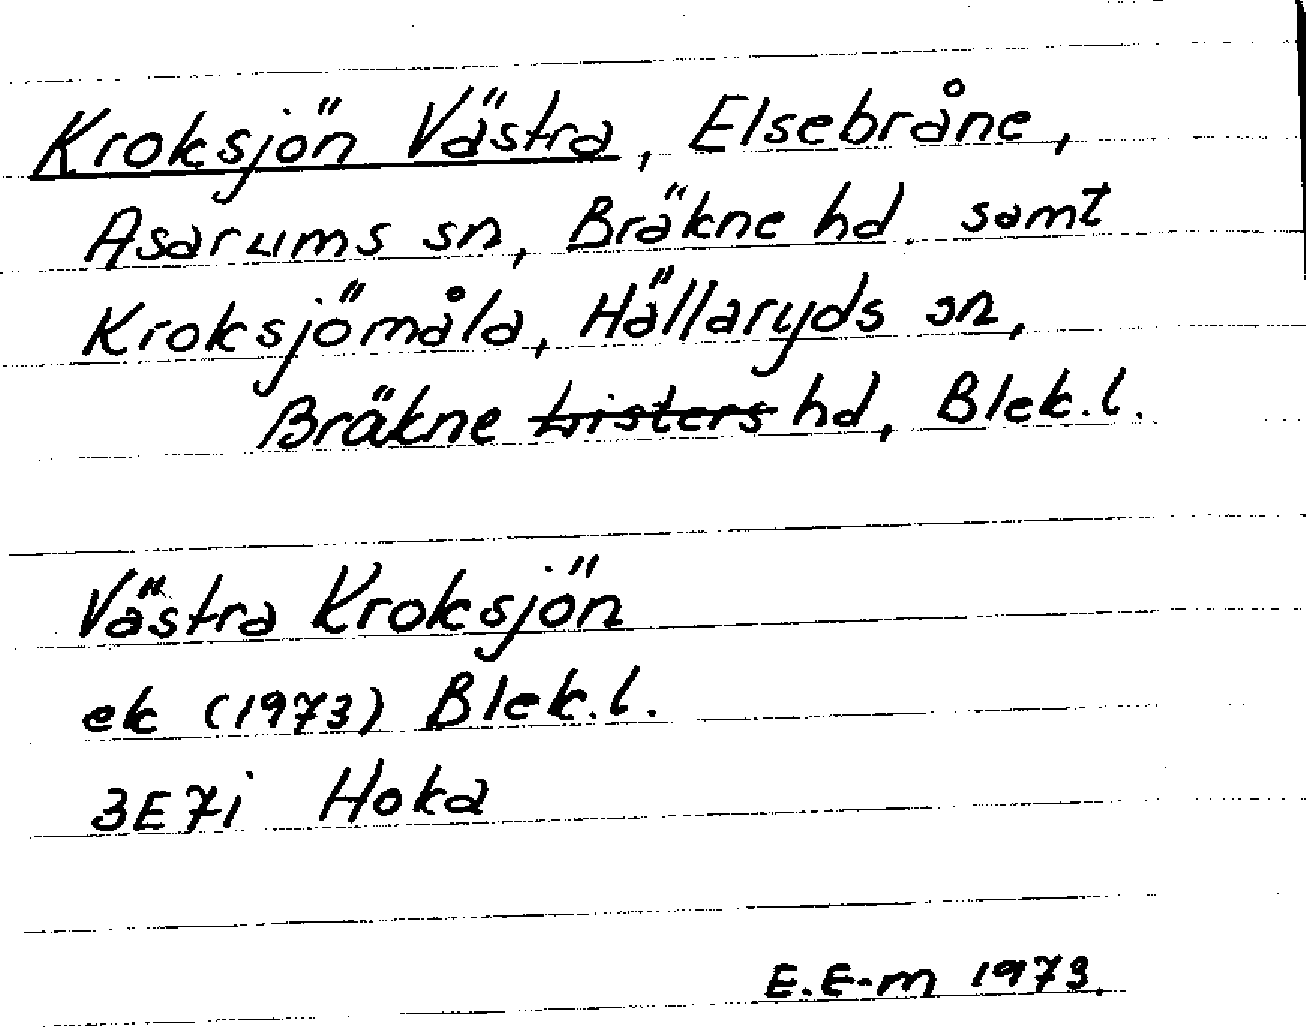 Kroksjön Västra, Elsebråne,
Asarums sn, Bräkne hd. samt
Kroksjömåla, Hällaryds sn,
Bräkne Listers hd, Blek.l.
Västra Kroksjön
ek (1973) Blek.l.
3E7i Hoka
E.E-m 1973.